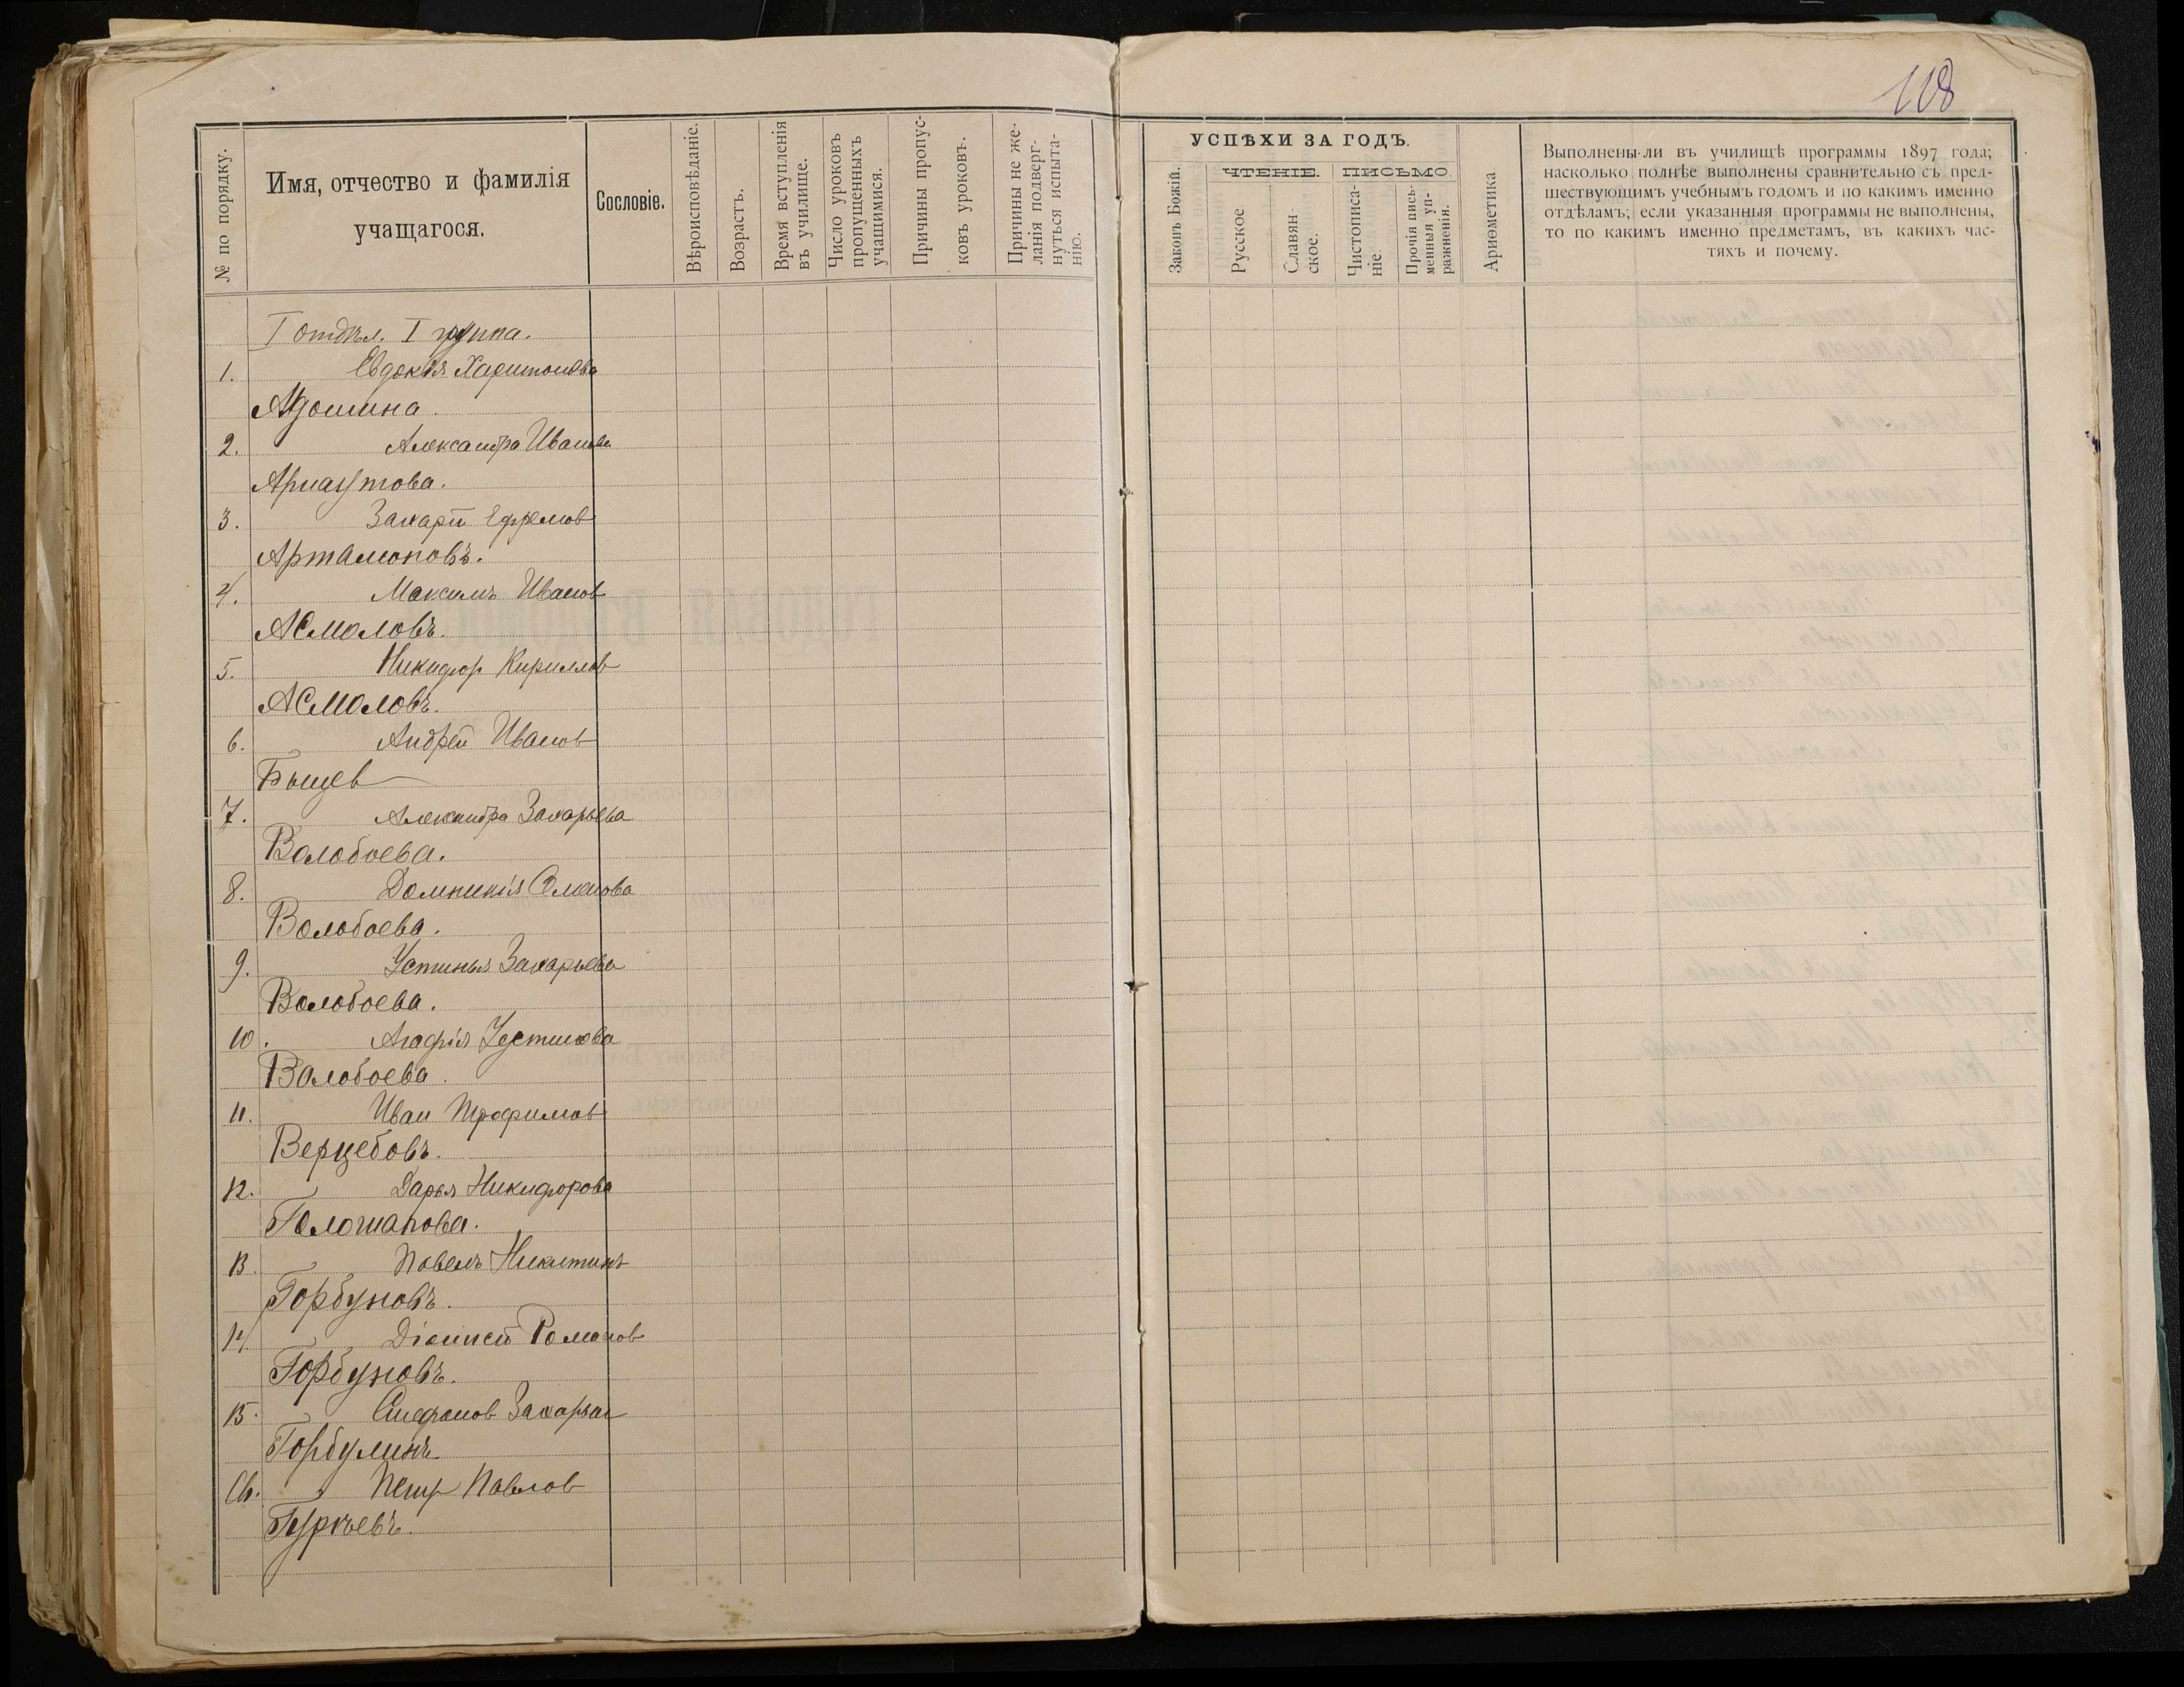 118
№ по порядку.
Имя, отчество и фамилія
учащагося.
Сословіе.
Вѣроисповѣданіе.
Возрастъ.
Время вступленія
въ училище.
Число уроковъ
пропущенныхъ
учащимися.
Причины пропус-
ковъ уроковъ.
Причины не же-
ланія подверг-
нуться испыта-
нію.
УСПѢХИ ЗА ГОДЪ.
Законъ Божій.
ЧТЕНІЕ.
Русское
Славян-
ское.
ПИСЬМО.
Чистописа-
ніе.
Прочія пись-
менныя уп-
ражненія.
Ариѳметика
Выполнены-ли въ училищѣ программы 1897 года;
насколько полнѣе выполнены сравнительно съ пред-
шествующимъ учебнымъ годомъ и по какимъ именно
отдѣламъ; если указанныя программы не выполнены,
то по какимъ именно предметамъ, въ какихъ час-
тяхъ и почему.
I отдѣл. I группа.
1. Евдокія Харитонова
Адошина.
2. Александра Иванова
Арнаутова.
3. Захарій Ефремов
Артамоновъ.
4. Максимъ Иванов
Асмоловъ.
5. Никифор Кириллов
Асмоловъ.
6. Андрей Иванов
Быцев
7. Александра Захарьева
Волобоева.
8. Домникія
Волобоева.
9. Устинья Захарьева
Волобоева.
10. Агафія Устинова
Волобоева.
11. Иван Трофимов
Верцебовъ.
12. Дарья Никифорова
Голошапова.
13. Павелъ Никитинъ
Горбуновъ.
14. Діонисій Романов
Горбуновъ.
15. Захарьев
Горбулинъ.
16. Петр Павлов
Гурьевъ.